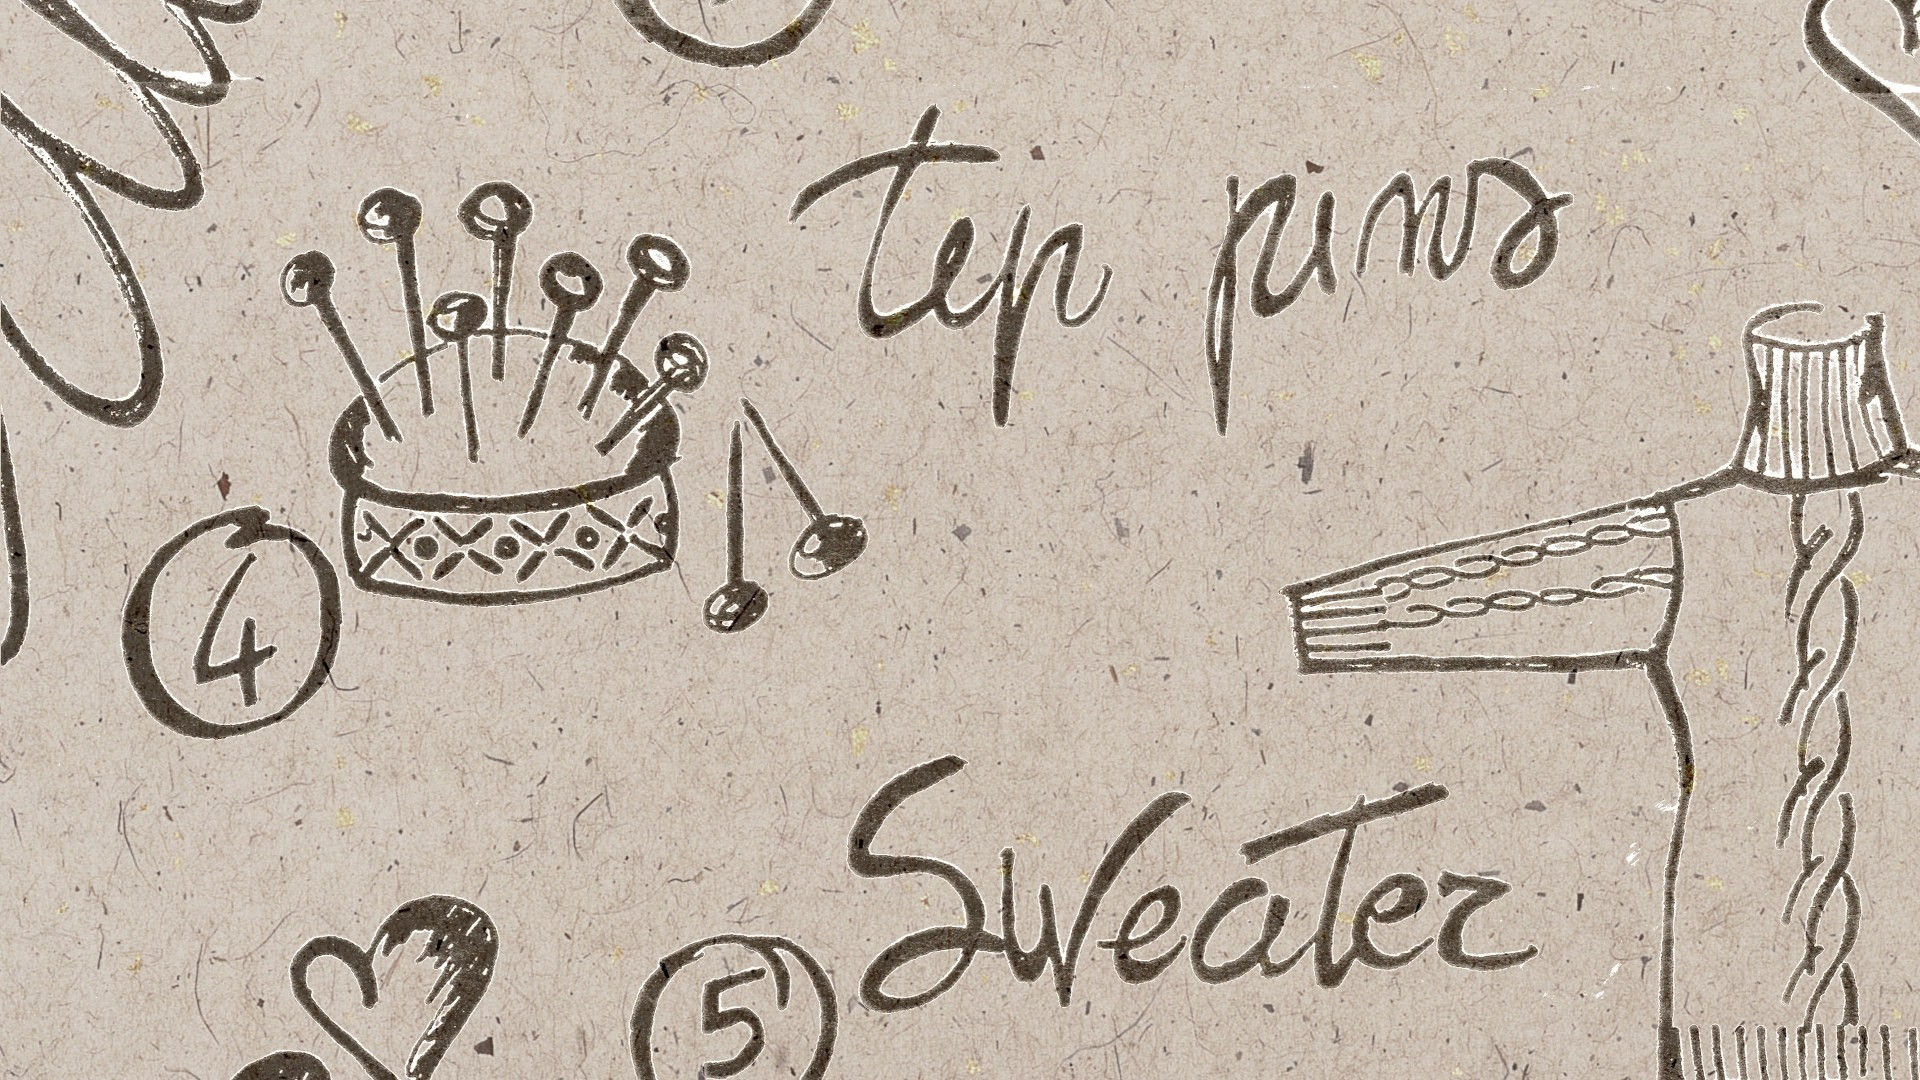 tep pins
4
Sweater
5